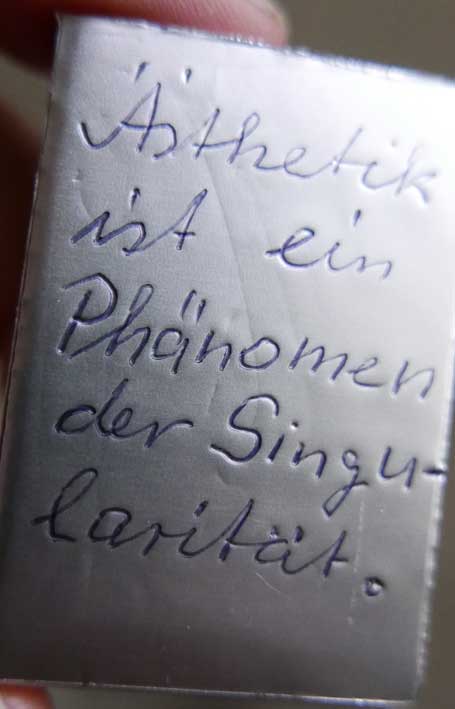 Ästhetik
ist ein
Phänomen
der Singu-
larität.